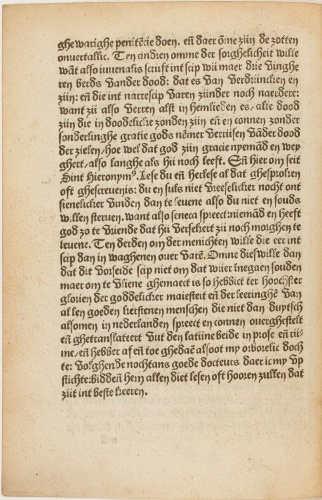 ghewarighe penitẽcie doen. eñ daer õme zijn de zotten
onuertallic. Ten andren omme der sorghelicheit wille
wãt also iuuenalis scrijft int scip wij maer drie vinghe
ren berds vander doot: dat es van verdrincken en
zijn: eñ die int narrescip varen zijnder noch naerdere:
want zij also verren alst in hemlieden es, alle dood
zijn die in doodelicke zonden zijn eñ en connen zonder
sonderlinghe gratie gods nẽmer verrijsen vãder dood
der zielen, hoe wel dat god zijn gracie nyemãd en wey
ghert, also langhe als hij noch leeft. Eñ hier om seit
Sint Hieronymꝰ. Lese du eñ herlese al dat ghesproken
oft ghescreuen is: du en sult niet vreeselicker nocht ont
sienelicker vinden dan te leuene also du niet en souds
willen steruen. want also seneca spreect niemãd en heeft
god zo te vriende dat hij versekert zij noch morghen te
leuene. Ten derden om der menichten wille die eer int
scip dan in waghenen ouer varẽ. Omme dies wille dan
dat dit vorseide scip niet om dat wijer inegaen souden
maer om te vliene ghemaect is so hebbict ter hoochster
glorien der goddelicker maiesteit eñ der leeringhẽ van
al len goeden kerstenen menschen die niet dan duytsch
alsomen in nederlanden spreect en connen ouerghestelt
eñ ghetranslateert vut den latijne beide in prose eñ rij-
me, en hebber af eñ toe ghedaẽ alsoot my orborelic doch
te: volghende nochtans goede docteurs daer ic my vp
stichte: biddeñ hem allen diet lesen oft hooren zullen dat
zijt int beste keeren.